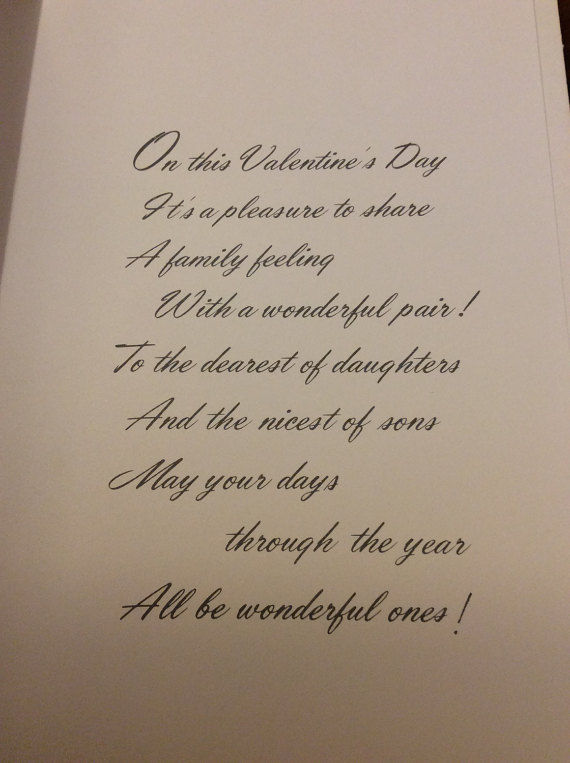 On this Valentine's Day
It's a pleasure to share
A family feeling
With a wonderful pair!
To the dearest of daughters
And the nicest of sons
May your days
through the year
All be wonderful ones!